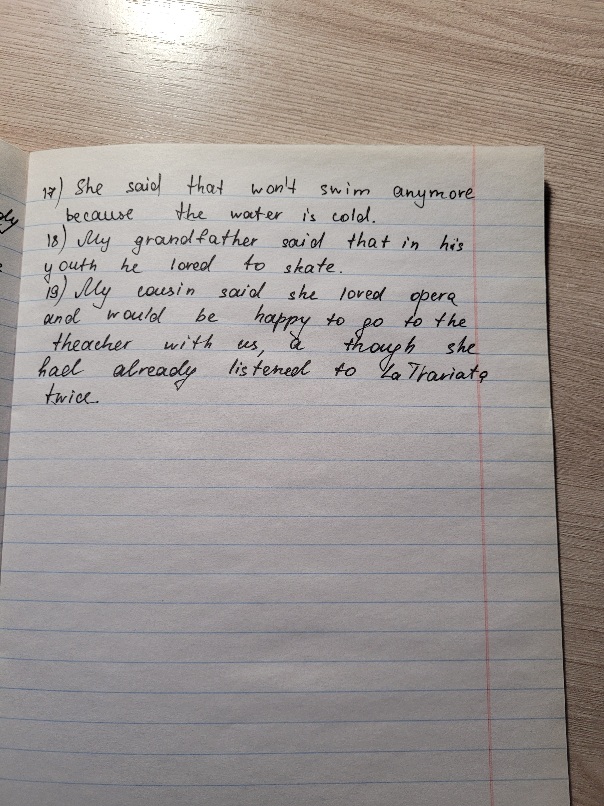 17) She said that won't swim anymore
because the water is cold.
18) My grandfather said that in his
youth he loved to skate.
19) My cousin said she loved opera
and would be happy to go to the
theacher with us, a though she
had already listened to La Traviata
twice.
dy